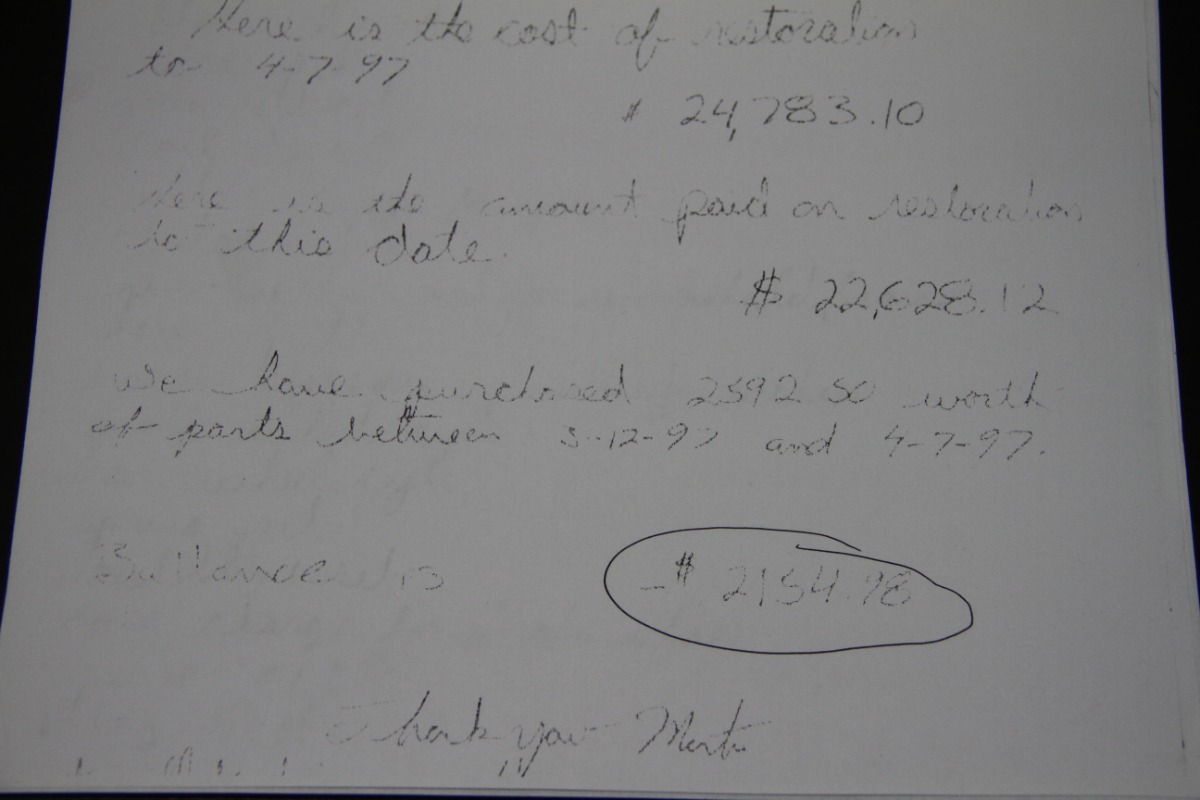 Here is the cost of restoration
to 4-7-97
$ 24,783.10
Here is the amount paid on restoration
to this date.
$ 22,628.12
We have purchased 2592 50 worth
of parts between 3-12-97 and 4-7-97.
Ballance is
-$ 2154.98
Thank you